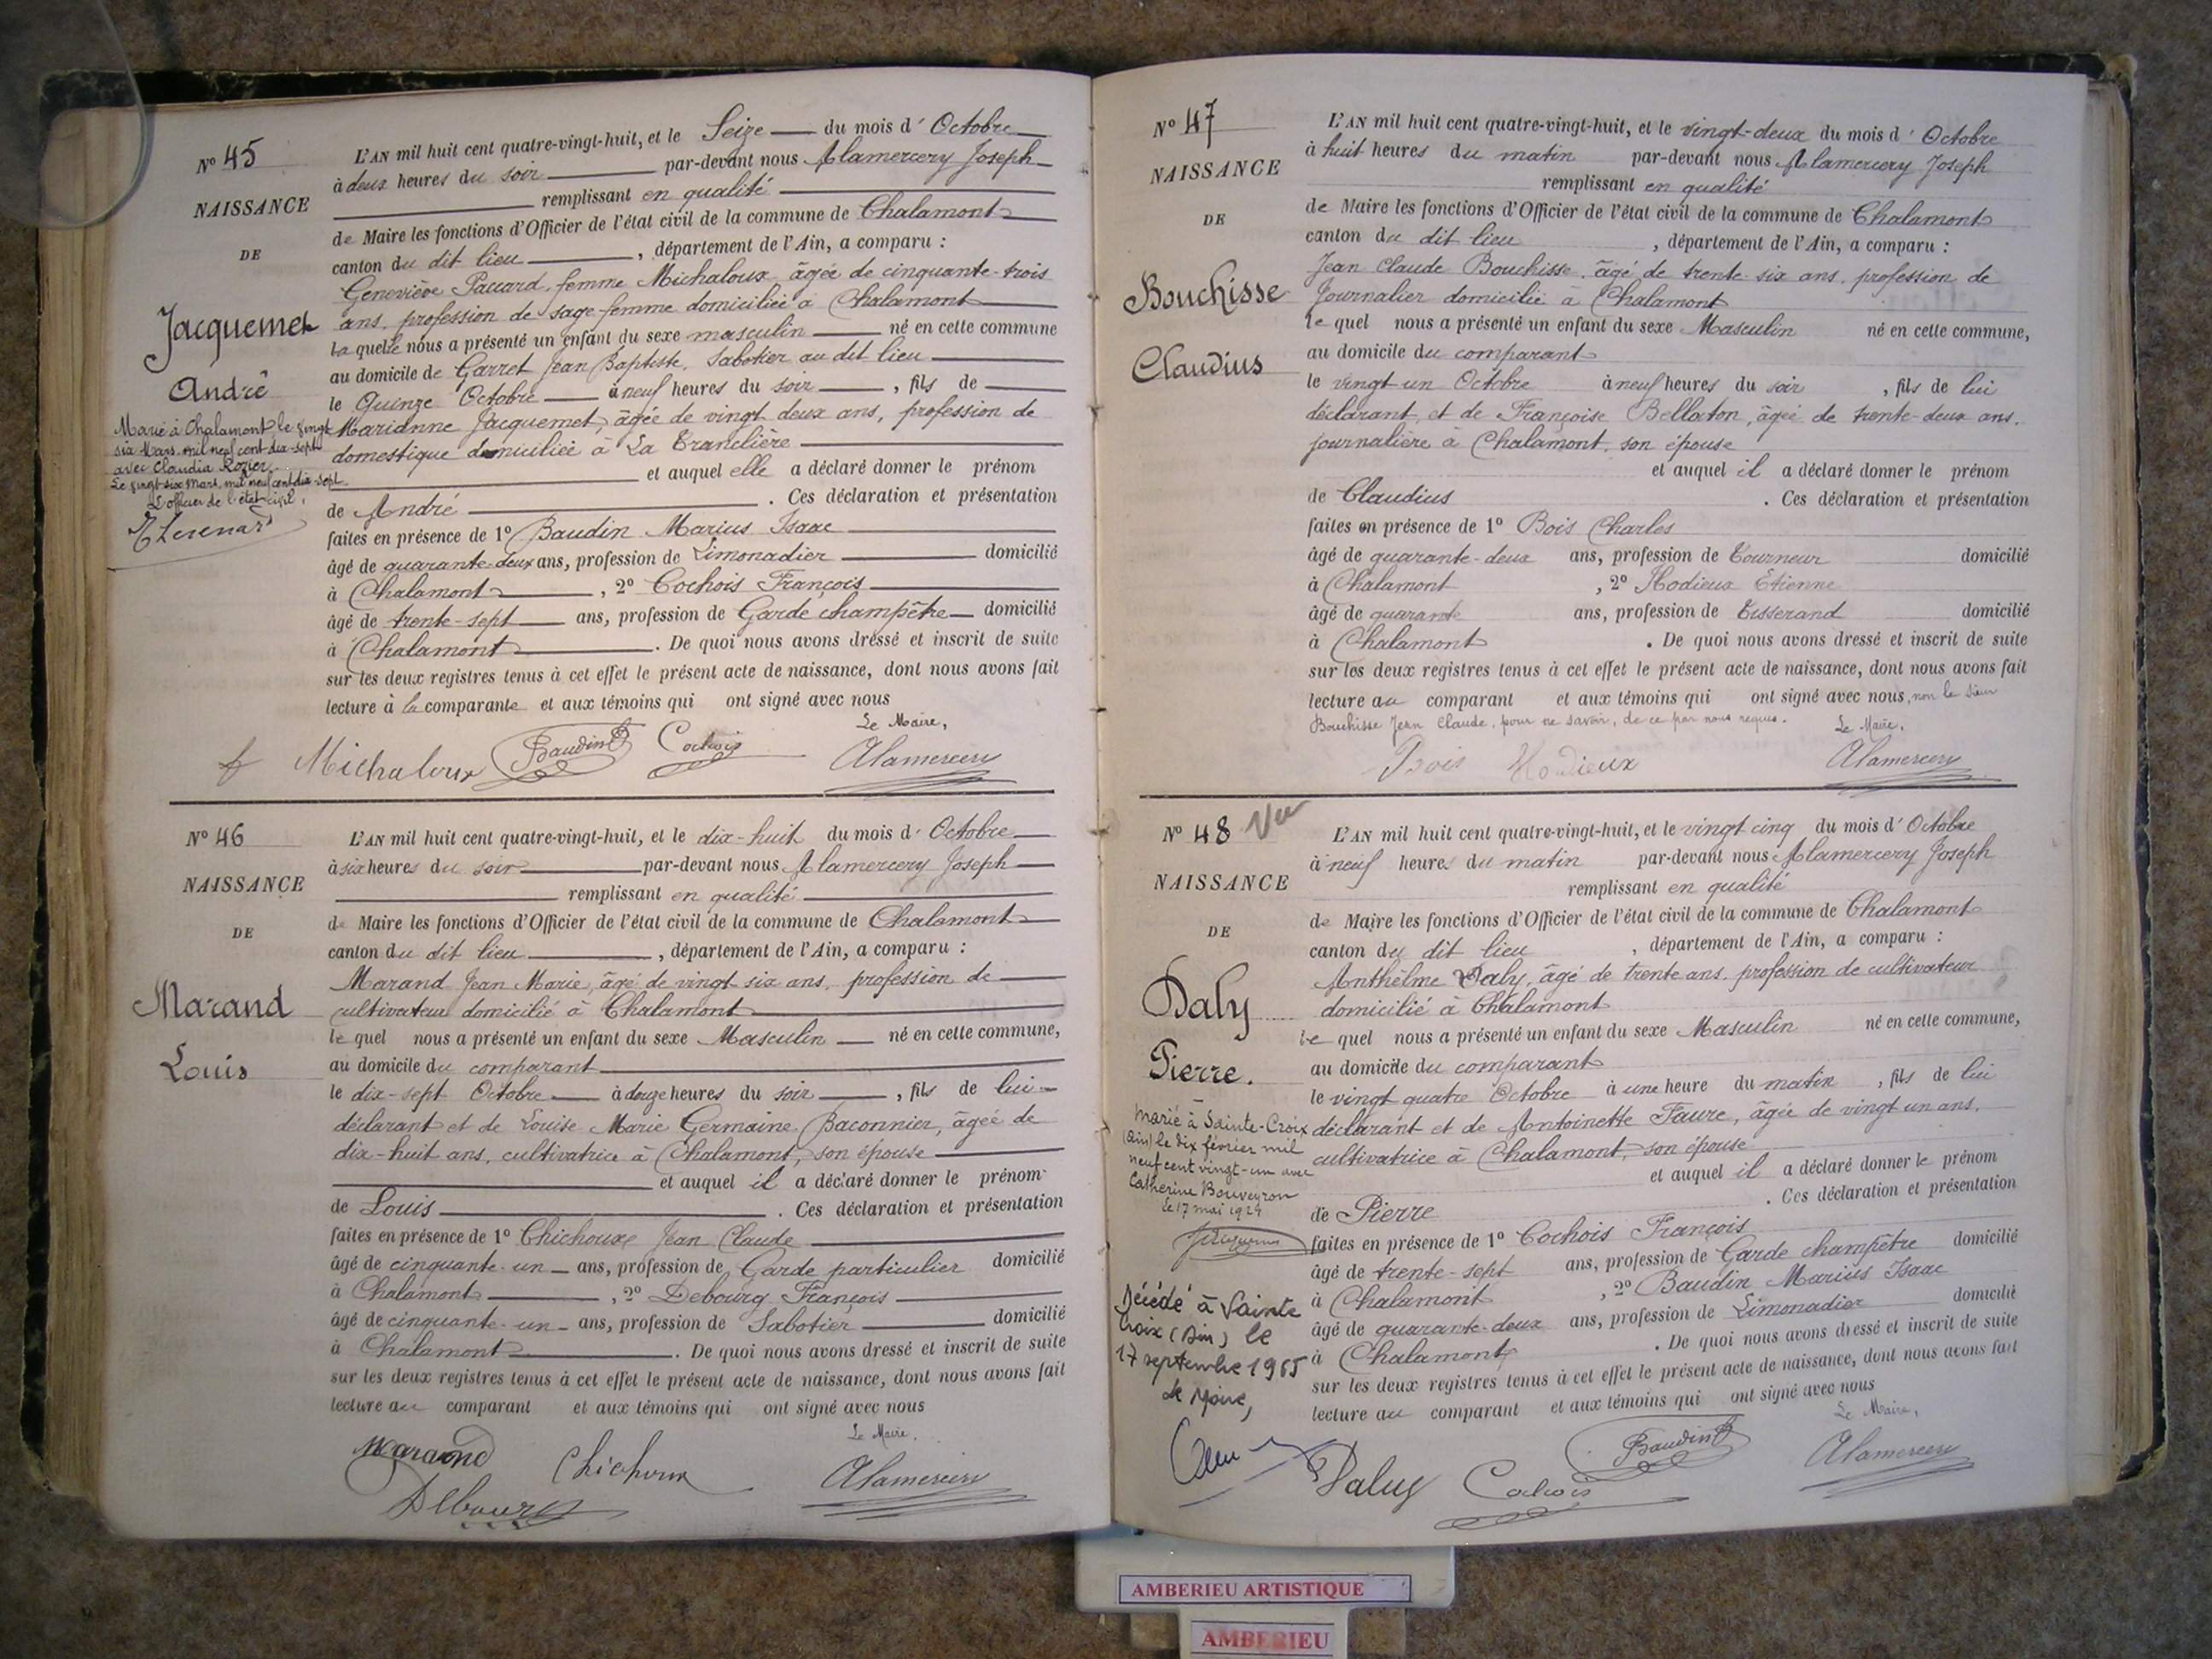 N° 45
NAISSANCE
DE
Jacquemet
André
Marié à Chalamont le vingt
six Mars mil neuf cent dix-sept
avec Claudia Rozier.
Le vingt six Mars mil neuf cent dix-sept
L'officier de l'état civil,
L'AN mil huit cent quatre-vingt-huit, et le Seize du mois d' Octobre
à deux heures du soir par-devant nous Alamercery Joseph
remplissant en qualité
de Maire les fonctions d'Officier de l'état civil de la commune de Chalamont
canton du dit lieu, département de l'Ain, a comparu :
Geneviève Paccard, femme Michaloux âgée de cinquante-trois
ans, profession de sage-femme domiciliée à Chalamont
la quelle nous a présenté un enfant du sexe masculin né en cette commune
au domicile de Garret Jean Baptiste, Sabotier au dit lieu
le Quinze Octobre à neuf heures du soir, fils de
Marianne Jacquemet, âgée de vingt deux ans, profession de
domestique domiciliée à La Tranclière
et auquel elle a déclaré donner le prénom
de André. Ces déclaration et présentation
faites en présence de 1° Baudin Marius Isaac
âgé de quarante-deux ans, profession de Limonadier domicilié
à Chalamont, 2° Cochois François
âgé de trente-sept ans, profession de Garde champêtre domicilié
à Chalamont. De quoi nous avons dressé et inscrit de suite
sur les deux registres tenus à cet effet le présent acte de naissance, dont nous avons fait
lecture à la comparante et aux témoins qui ont signé avec nous
Le Maire,
f Michaloux Baudin Cochois Alamercery
N° 46
NAISSANCE
DE
Marand
Louis
L'AN mil huit cent quatre-vingt-huit, et le dix-huit du mois d' Octobre
à six heures du soir par-devant nous Alamercery Joseph
remplissant en qualité
de Maire les fonctions d'Officier de l'état civil de la commune de Chalamont
canton du dit lieu, département de l'Ain, a comparu :
Marand Jean Marie, âgé de vingt six ans, profession de
cultivateur domicilié à Chalamont
le quel nous a présenté un enfant du sexe Masculin né en cette commune,
au domicile du comparant
le dix-sept Octobre à douze heures du soir, fils de lui
déclarant et de Louise Marie Germaine Baconnier, âgée de
dix-huit ans, cultivatrice à Chalamont, son épouse
et auquel il a déclaré donner le prénom
de Louis. Ces déclaration et présentation
faites en présence de 1° Chichoux Jean Claude
âgé de cinquante-un ans, profession de Garde particulier domicilié
à Chalamont, 2° Debourg François
âgé de cinquante-un ans, profession de Sabotier domicilié
à Chalamont. De quoi nous avons dressé et inscrit de suite
sur les deux registres tenus à cet effet le présent acte de naissance, dont nous avons fait
lecture au comparant et aux témoins qui ont signé avec nous
Le Maire,
Marand Chichoux Alamercery
Debourg
N° 47
NAISSANCE
DE
Bouchisse
Claudius
L'AN mil huit cent quatre-vingt-huit, et le vingt-deux du mois d' Octobre
à huit heures du matin par-devant nous Alamercery Joseph
remplissant en qualité
de Maire les fonctions d'Officier de l'état civil de la commune de Chalamont
canton du dit lieu, département de l'Ain, a comparu :
Jean Claude Bouchisse, âgé de trente-six ans, profession de
Journalier domicilié à Chalamont
le quel nous a présenté un enfant du sexe Masculin né en cette commune,
au domicile du comparant
le vingt un Octobre à neuf heures du soir, fils de lui
déclarant, et de Françoise Bellaton, âgée de trente-deux ans,
journalière à Chalamont, son épouse
et auquel il a déclaré donner le prénom
de Claudius. Ces déclaration et présentation
faites en présence de 1° Bois Charles
âgé de quarante-deux ans, profession de Tourneur domicilié
à Chalamont, 2° Hodieux Etienne
âgé de quarante ans, profession de Tisserand domicilié
à Chalamont. De quoi nous avons dressé et inscrit de suite
sur les deux registres tenus à cet effet le présent acte de naissance, dont nous avons fait
lecture au comparant et aux témoins qui ont signé avec nous, non le sieur
Bouchisse Jean Claude, pour ne savoir, de ce par nous requis.
Le Maire,
Bois Hodieux Alamercery
N° 48 Vu
NAISSANCE
DE
Daly
Pierre.
marié à Sainte-Croix
(Ain) le dix février mil
neuf cent vingt-un avec
Catherine Bouveyron
le 17 mai 1924
Décédé à Sainte
Croix (Ain) le
17 septembre 1965
Le Maire,
L'AN mil huit cent quatre-vingt-huit, et le vingt cinq du mois d' Octobre
à neuf heures du matin par-devant nous Alamercery Joseph
remplissant en qualité
de Maire les fonctions d'Officier de l'état civil de la commune de Chalamont
canton du dit lieu, département de l'Ain, a comparu :
Anthelme Daly, âgé de trente ans, profession de cultivateur
domicilié à Chalamont
le quel nous a présenté un enfant du sexe Masculin né en cette commune,
au domicile du comparant
le vingt quatre Octobre à une heure du matin, fils de lui
déclarant et de Antoinette Faure, âgée de vingt un ans,
cultivatrice à Chalamont, son épouse
et auquel il a déclaré donner le prénom
de Pierre. Ces déclaration et présentation
faites en présence de 1° Cochois François
âgé de trente-sept ans, profession de Garde champêtre domicilié
à Chalamont, 2° Baudin Marius Isaac
âgé de quarante-deux ans, profession de Limonadier domicilié
à Chalamont. De quoi nous avons dressé et inscrit de suite
sur les deux registres tenus à cet effet le présent acte de naissance, dont nous avons fait
lecture au comparant et aux témoins qui ont signé avec nous
Le Maire,
Daly Cochois Baudin Alamercery
AMBERIEU ARTISTIQUE
AMBERIEU